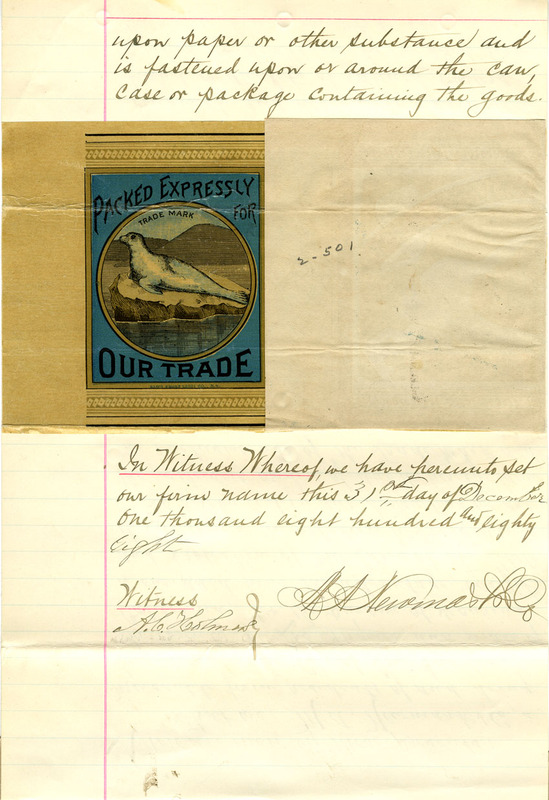 upon paper or other substance and
is fastened upon or around the can,
case or package containing the goods.
PACKED EXPRESSLY
FOR
TRADE MARK
OUR TRADE
2-501.
In Witness Whereof, we have hereunto set
our firm name this 31st day of December
One thousand eight hundred and eighty
eight
Witness